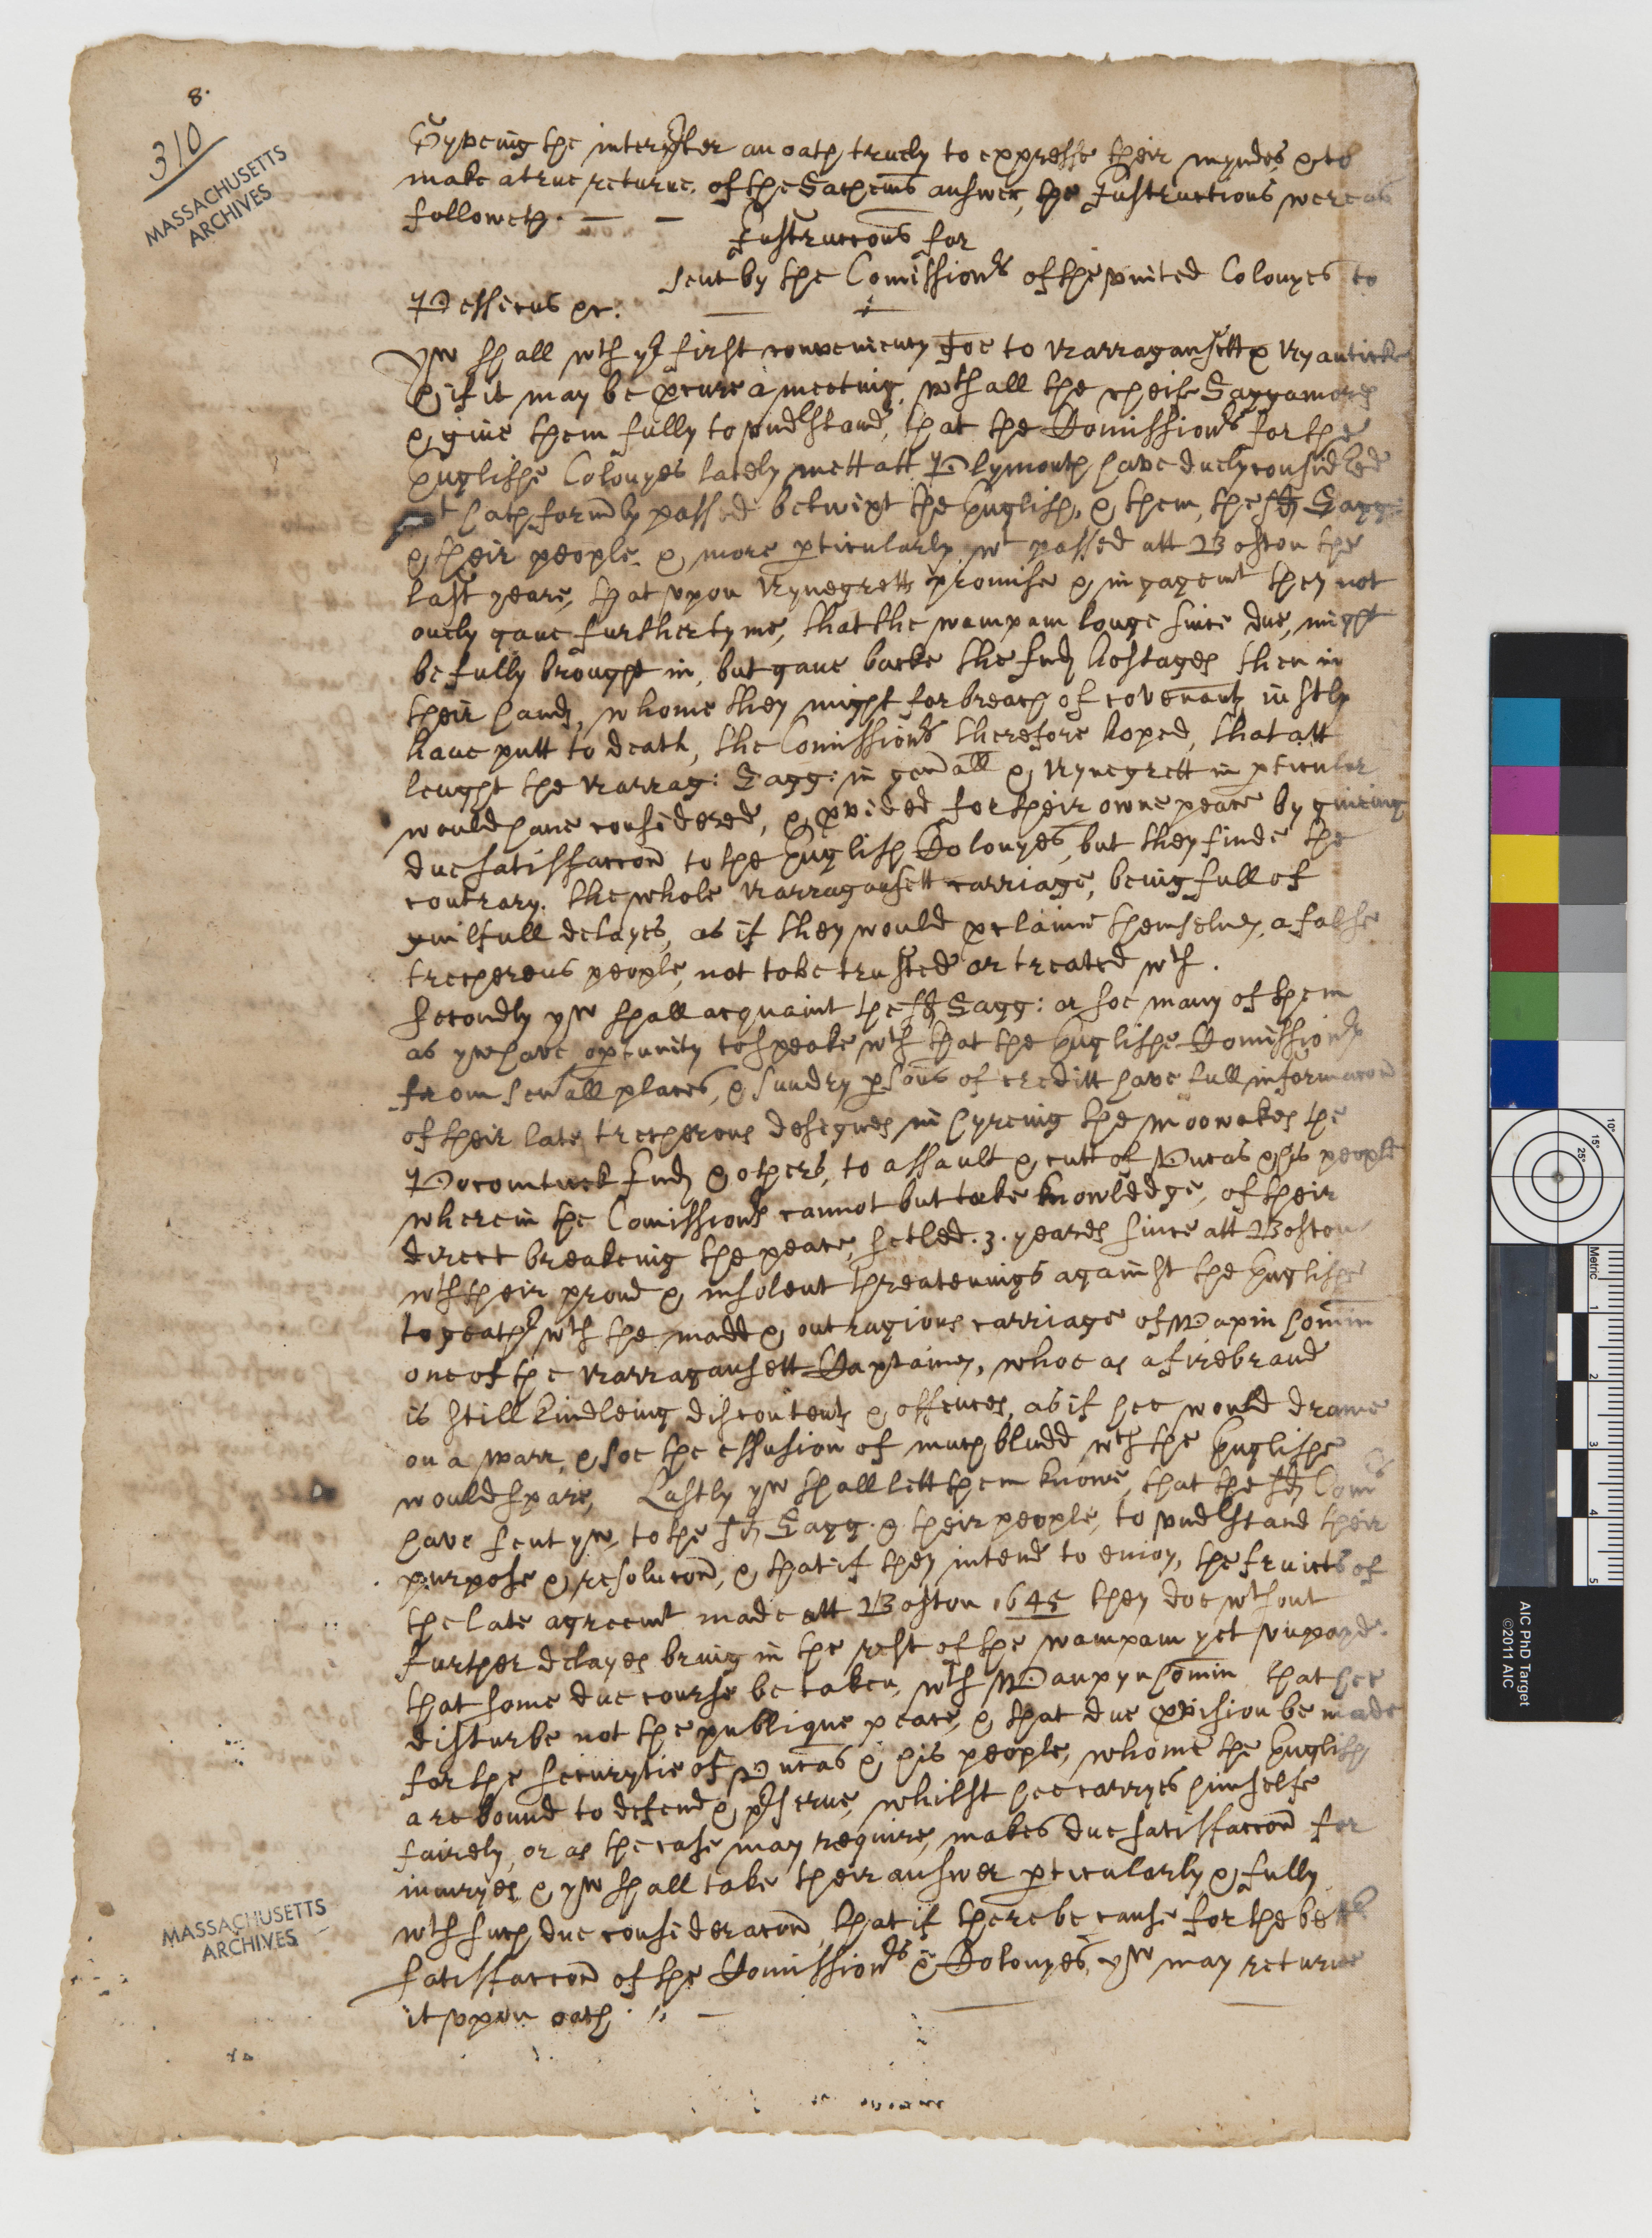 8.
310
MASSACHUSETTS
ARCHIVES
Gyveing the interpter an oath, truely to expresse their myndes, & to
make a true returne, of the Sachems answer, the Instructions were as
followeth. — —
Instruccons for
sent by the Comissionrs of the vnited Colonyes to
Pessecus &c.
yow shall wth yr first conveniency goe to Narragansett & Nyanticke
& if it may be pcure a meeting, wth all the cheife Saggamores
& giue them fully to vndrstand, that the Comissionrs for the
Englishe Colonyes lately mett att Plymouth have duely considered
wt hath formrly passed betwixt the English, & them, the sd Sagg:
& their people, & more pticularly wt passed att Boston the
last yeare, that vpon Nynegretts promise & ingagemt they not
onely gaue further tyme, that the wampam longe since due, might
be fully brought in, but gaue backe the Indj hostages then in
their hands, whome they might for breach of covenants iustly
haue putt to death, the Comissionrs therefore hoped, that att
lenght the Narrag: Sagg: in genrall & Nynegrett in pticular
would haue considered, & pvided for their owne peace by giuing
due satisfaccon to the English Colonyes, but they finde the
contrary. the whole Narragansett carriage, being full of
guilfull delayes, as if they would pclaime themselues, a false
trecherous people, not to be trusted or treated wth.
Secondly yow shall acquaint the sd Sagg: or soe many of them
as yow have oportunity to speake wth that the Englishe Comissionrs
from seurall places, & sundry psons of creditt have full informacon
of their late trecherous desegnes in hyreing the Moowakes the
Pocomtuck Indj & others, to assault & cutt of Vncas & his people
wherein the Comissionrs cannot but take knowledge, of their
direct breakeing the peace, setled .3. yeares since att Boston
wth their proud & insolent threatenings against the Englishe
togeathr wth the madd & outragious carriage of Wapin homin
one of the Narragansett Captaines, whoe as a firebrand
is still kindleing discontents & offences, as if hee would drawe
on a warr, & soe the effusion of much bludd, wch the Englishe
would spare, Lastly yow shall lett them knowe, that the sd Comrs
have sent yow, to the sd Sagg. & their people, to vndrstand their
purpose & resolucon, & that if they intend to enioy, the fruicts of
the late agreemt made att Boston 1645 they doe wthout
further delayes bring in the rest of the wampam yet vnpayd.
that some due course be taken, wth Waupynhomin that hee
disturbe not the publique peace, & that due pvision be made
for the securytie of Vncas & his people, whome the English
are bound to defend & prserue, whilst hee carryes himselfe
fairely, or as the case may require, makes due satisfaccon for
iniuryes & yow shall take their answer pticularly & fully
wth such due consideracon, that if there be cause for the bettr
satisfaccon of the Comissionrs & Colonyes, yow may returne
it vpon oath. —
MASSACHUSETTS
ARCHIVES
AIC PhD Target
©2011 AIC
Metric
1
2
3
4
5
10°
15°
25°